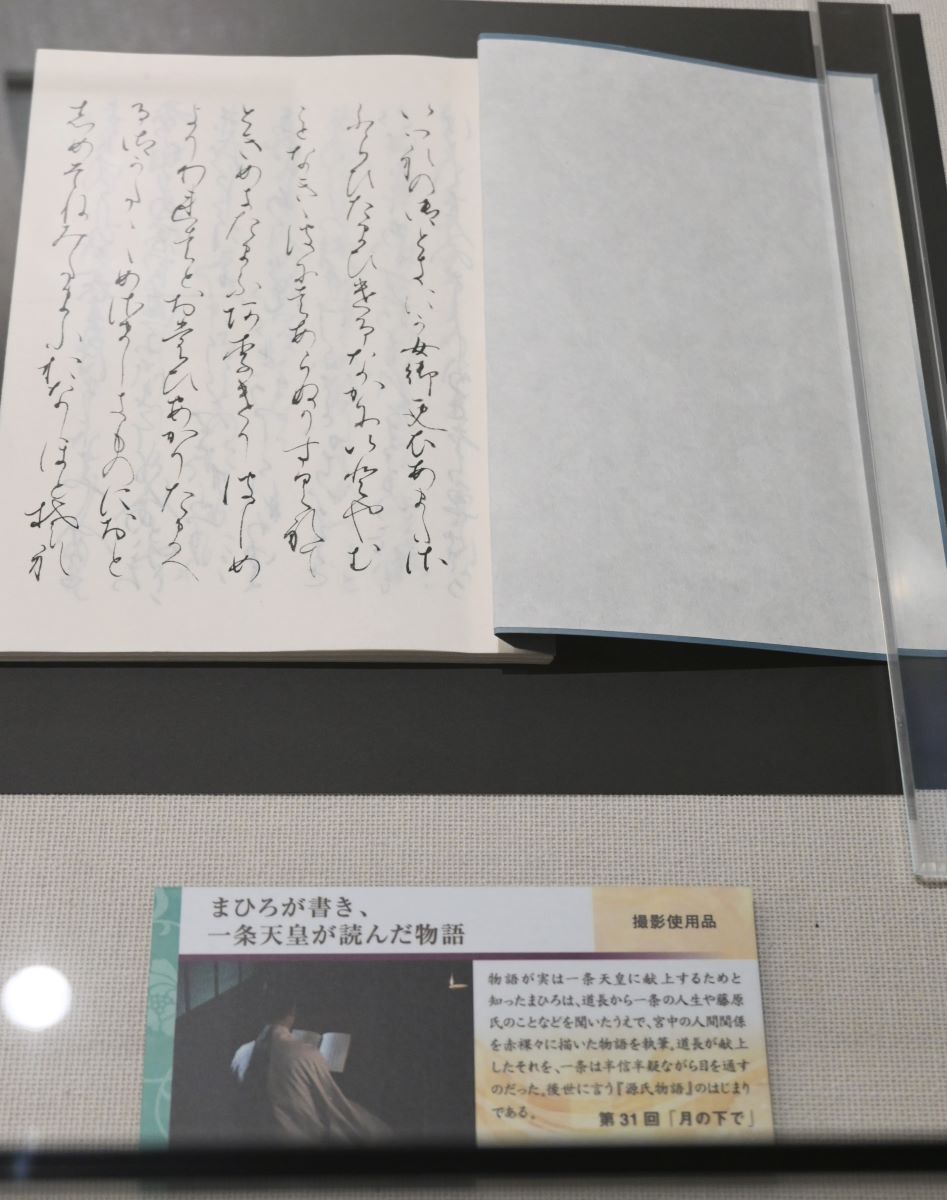 いつれの御ときにか女御更衣あまたさ
ふらひたまひけるなかにいとやむ
ことなきゝはにはあらぬかすくれて
ときめきたまふありけりはしめ
よりわれはとおもひあかりたまへ
る御かた〳〵めさましきものにおと
しめそねみたまふおなしほとそれ
まひろが書き、
一条天皇が読んだ物語
撮影使用品
物語が実は一条天皇に献上するためと
知ったまひろは、道長から一条の人生や藤原
氏のことなどを聞いたうえで、宮中の人間関係
を赤裸々に描いた物語を執筆。道長が献上
したそれを、一条は半信半疑ながら目を通す
のだった。後世に言う『源氏物語』のはじまり
である。
第31回「月の下で」